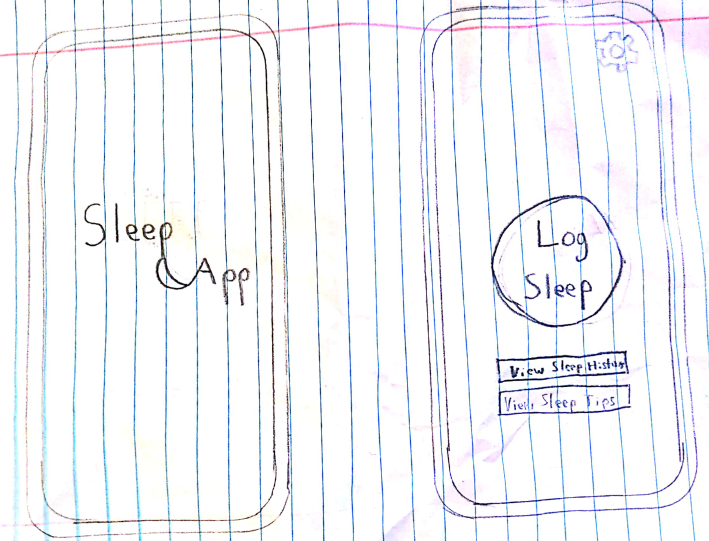 Sleep
App
Log
Sleep
View Sleep History
View Sleep Tips